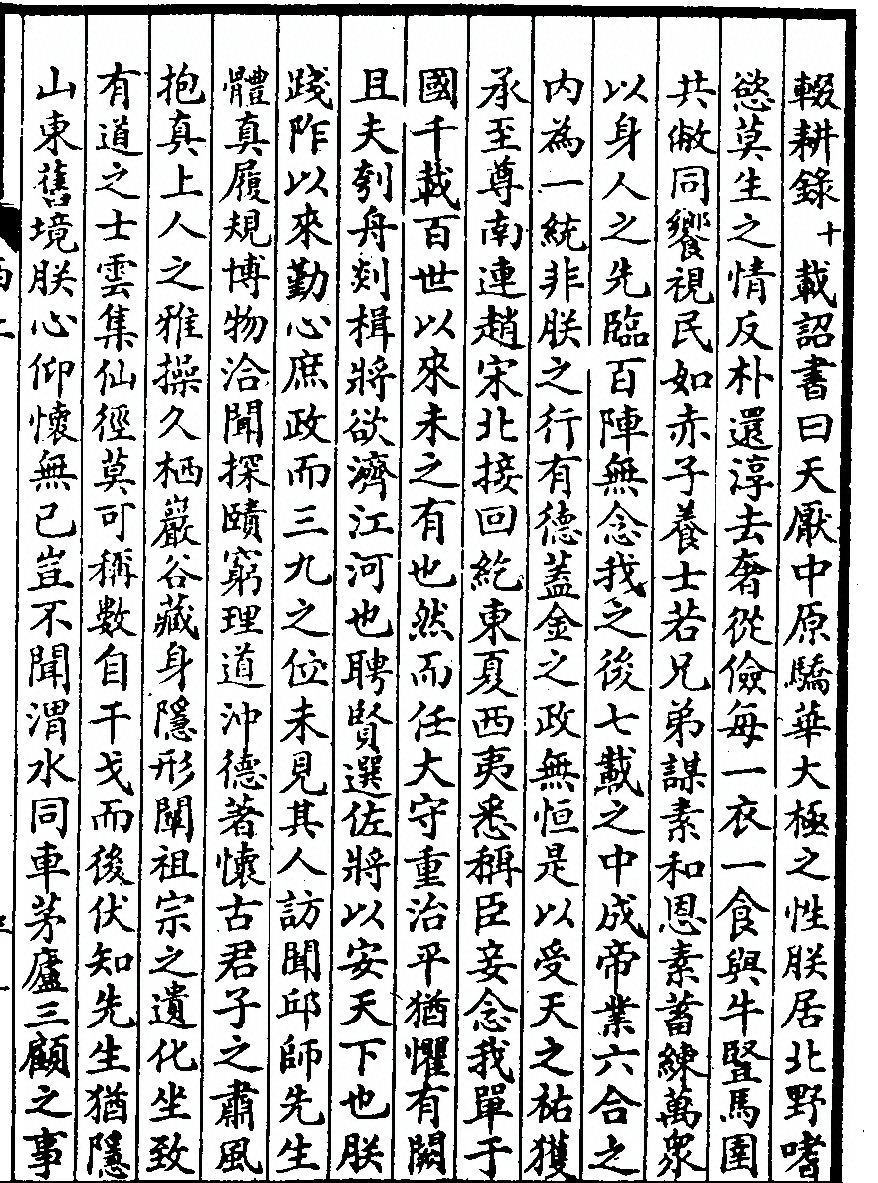 輟耕錄十載詔書曰天厭中原驕華大極之性朕居北野嗜
慾莫生之情反朴還淳去奢從儉每一衣一食與牛豎馬圉
共敝同饗視民如赤子養士若兄弟謀素和恩素蓄練萬衆
以身人之先臨百陣無念我之後七載之中成帝業六合之
内為一統非朕之行有德蓋金之政無恒是以受天之祐獲
承至尊南連趙宋北接回紇東夏西夷悉稱臣妾念我單于
國千載百世以來未之有也然而任大守重治平猶懼有闕
且夫刳舟剡楫將欲濟江河也聘賢選佐將以安天下也朕
踐阼以來勤心庶政而三九之位未見其人訪聞邱師先生
體真履規博物洽聞探賾窮理道沖德著懷古君子之肅風
抱真上人之雅操久栖巖谷藏身隱形闡祖宗之遺化坐致
有道之士雲集仙徑莫可稱數自干戈而後伏知先生猶隱
山東舊境朕心仰懷無已豈不聞渭水同車茅廬三顧之事